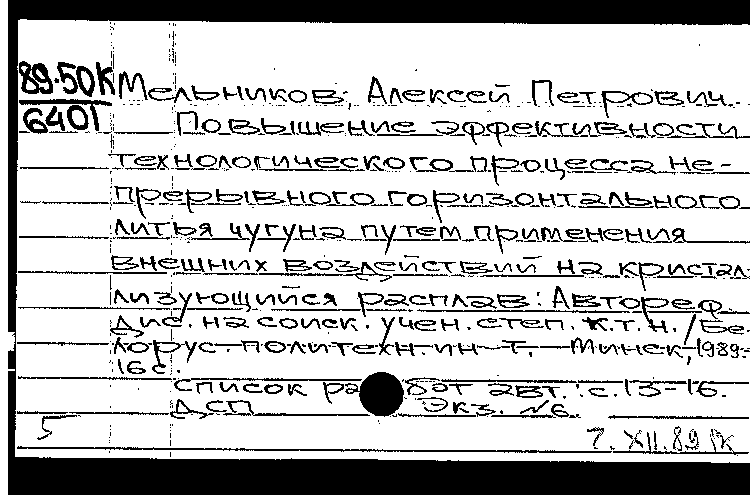 89-50К Мельников, Алексей Петрович.
6401 Повышение эффективности
технологического процесса не-
прерывного горизонтального
литья чугуна путем применения
внешних воздействий на кристал-
лизующийся расплав: Автореф.
дис. на соиск. учен. степ. к.т.н. / Бе-
лорус. политехн. ин-т. Минск, 1989.-
16 с.
Список работ авт.: с. 13-16.
ДСП Экз. №6.
5 7. XII. 89